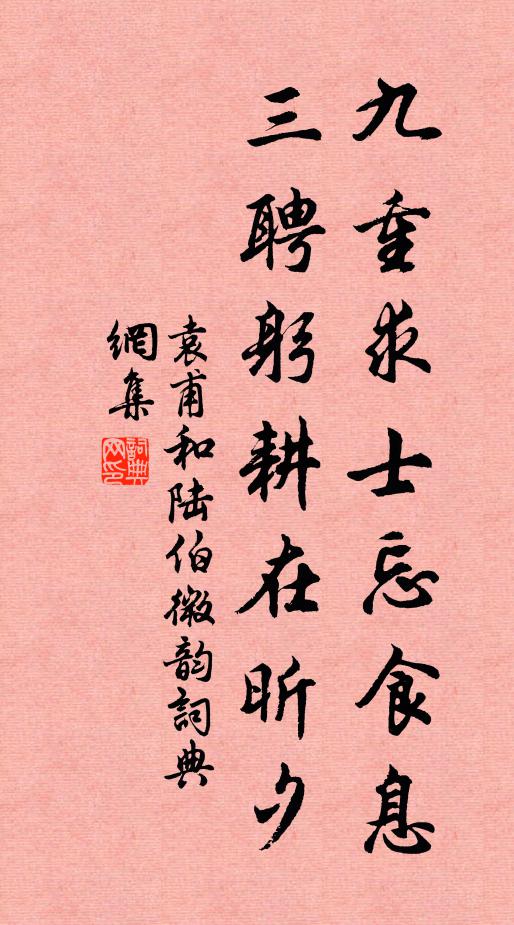 九重求士忘食息
三聘躬耕在昕夕
袁甫和陆伯微韵詞典
網集
詞典
网印